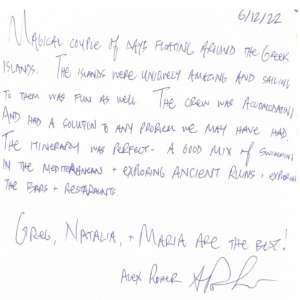 6/12/22
MAGICAL COUPLE OF DAYS FLOATING AROUND THE GREEK
ISLANDS. THE ISLANDS WERE UNIQUELY AMAZING AND SAILING
TO THEM WAS FUN AS WELL. THE CREW WAS ACCOMODATING
AND HAD A SOLUTION TO ANY PROBLEM WE MAY HAVE HAD.
THE ITINERARY WAS PERFECT - A GOOD MIX OF SWIMMING
IN THE MEDITERRANEAN + EXPLORING ANCIENT RUINS + EXPLORING
THE BARS + RESTAURANTS.
GREG, NATALIA, + MARIA ARE THE BEST!
ALEX